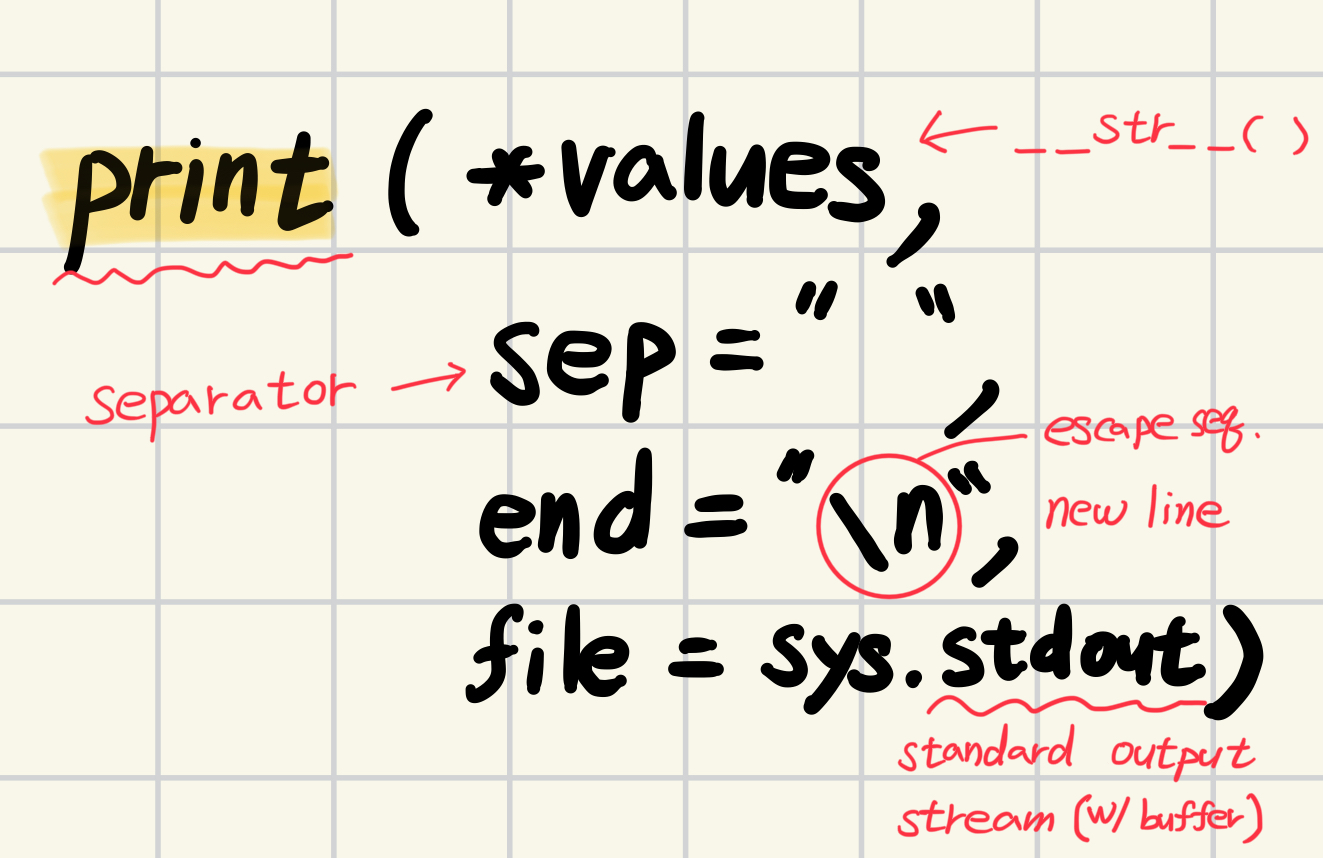 print ( *values, ← __str__( )
sep = " ",
separator →
end = "\n",
escape seq.
new line
file = sys.stdout)
standard output
stream (w/ buffer)